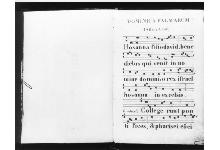 DOMINICA PALMARUM
Hosanna filio david. bene
dictus qui venit in no
mine domini. o rex israel
hosanna in excelsis
Collegerunt pon
ti fices, & pharisei